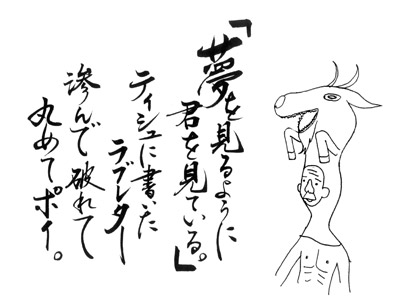 「夢を見るように
君を見ている。」
ティシュに書いた
ラブレター
滲んで破れて
丸めてポイ。